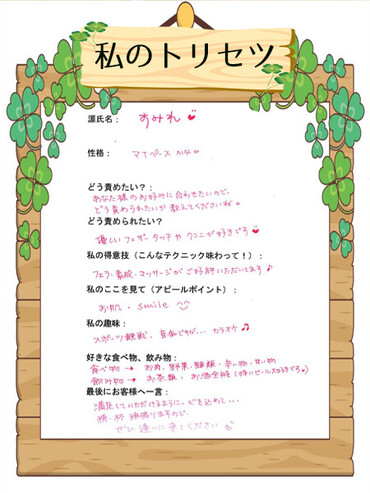 私のトリセツ
源氏名： すみれ
性格： マイペースかな
どう責めたい？：
あなた様のお好みに合わせたいので、
どう責められたいか教えてくださいね。
どう責められたい？：
優しいフェザータッチやクンニが好きです
私の得意技（こんなテクニック味わって！）：
フェラ・素股・マッサージがご好評いただいてます♪
私のここを見て（アピールポイント）：
お肌・smile
私の趣味：
スポーツ観戦、音楽ですが… カラオケ♪
好きな食べ物、飲み物：
食べ物 → お肉・野菜・麺類・辛い物・甘い物
飲み物 → お茶類・お酒全般（特にビール大好きです♪）
最後にお客様へ一言：
満足していただけるように、心を込めて…
精一杯頑張りますので、
ぜひ逢いに来てください